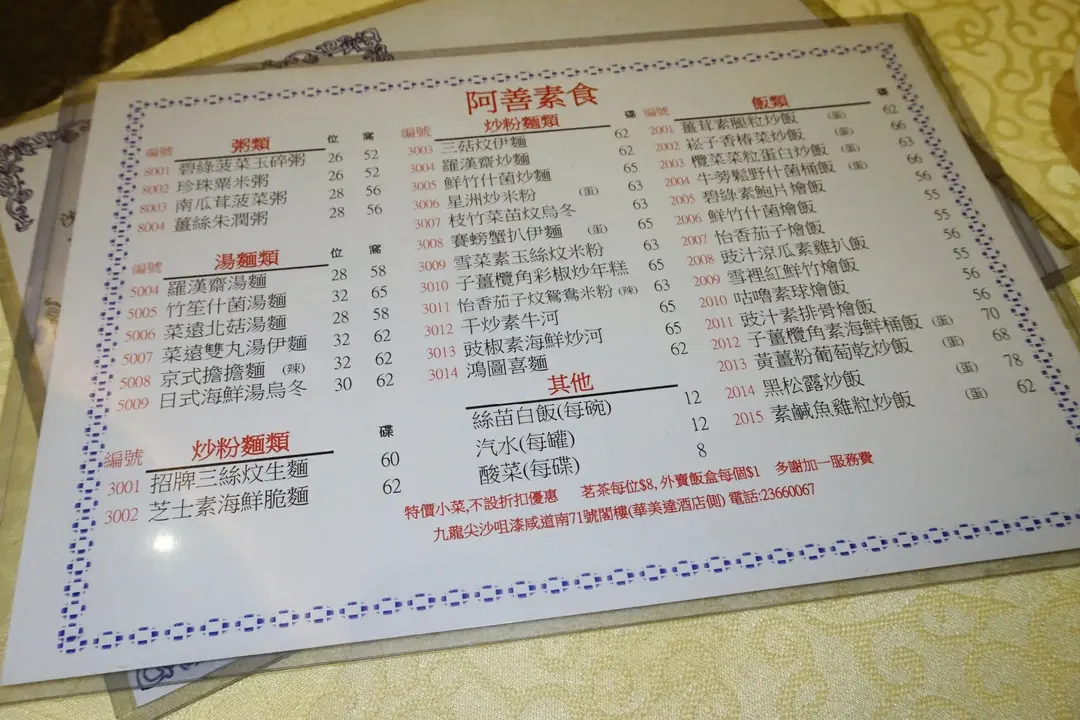 阿善素食
編號 粥類 位 窩
8001 碧綠菠菜玉碎粥 26 52
8002 珍珠粟米粥 26 52
8003 南瓜茸菠菜粥 28 56
8004 薑絲朱潤粥 28 56
編號 湯麵類 位 窩
5004 羅漢齋湯麵 28 58
5005 竹笙什菌湯麵 32 65
5006 菜遠北菇湯麵 28 58
5007 菜遠雙丸湯伊麵 32 62
5008 京式擔擔麵 (辣) 32 62
5009 日式海鮮湯烏冬 30 62
編號 炒粉麵類 碟
3001 招牌三絲炆生麵 60
3002 芝士素海鮮脆麵 62
編號 炒粉麵類 碟
3003 三菇炆伊麵 62
3004 羅漢齋炒麵 62
3005 鮮竹什菌炒麵 65
3006 星洲炒米粉 (蛋) 63
3007 枝竹菜苗炆烏冬 63
3008 賽螃蟹扒伊麵 (蛋) 65
3009 雪菜素玉絲炆米粉 63
3010 子薑欖角彩椒炒年糕 65
3011 怡香茄子炆鴛鴦米粉 (辣) 63
3012 干炒素牛河 65
3013 豉椒素海鮮炒河 65
3014 鴻圖喜麵 62
其他
絲苗白飯(每碗) 12
汽水(每罐) 12
酸菜(每碟) 8
編號 飯類 碟
2001 薑茸素腿粒炒飯 (蛋) 62
2002 崧子香椿菜炒飯 (蛋) 66
2003 欖菜菜粒蛋白炒飯 (蛋) 63
2004 牛蒡鬆野什菌桶飯 (蛋) 66
2005 碧綠素鮑片燴飯 56
2006 鮮竹什菌燴飯 55
2007 怡香茄子燴飯 55
2008 豉汁涼瓜素雞扒飯 56
2009 雪裡紅鮮竹燴飯 55
2010 咕嚕素球燴飯 56
2011 豉汁素排骨燴飯 56
2012 子薑欖角素海鮮桶飯 (蛋) 70
2013 黃薑粉葡萄乾炒飯 (蛋) 68
2014 黑松露炒飯 (蛋) 78
2015 素鹹魚雞粒炒飯 (蛋) 62
特價小菜,不設折扣優惠 茗茶每位$8, 外賣飯盒每個$1 多謝加一服務費
九龍尖沙咀漆咸道南71號閣樓(華美達酒店側) 電話:23660067